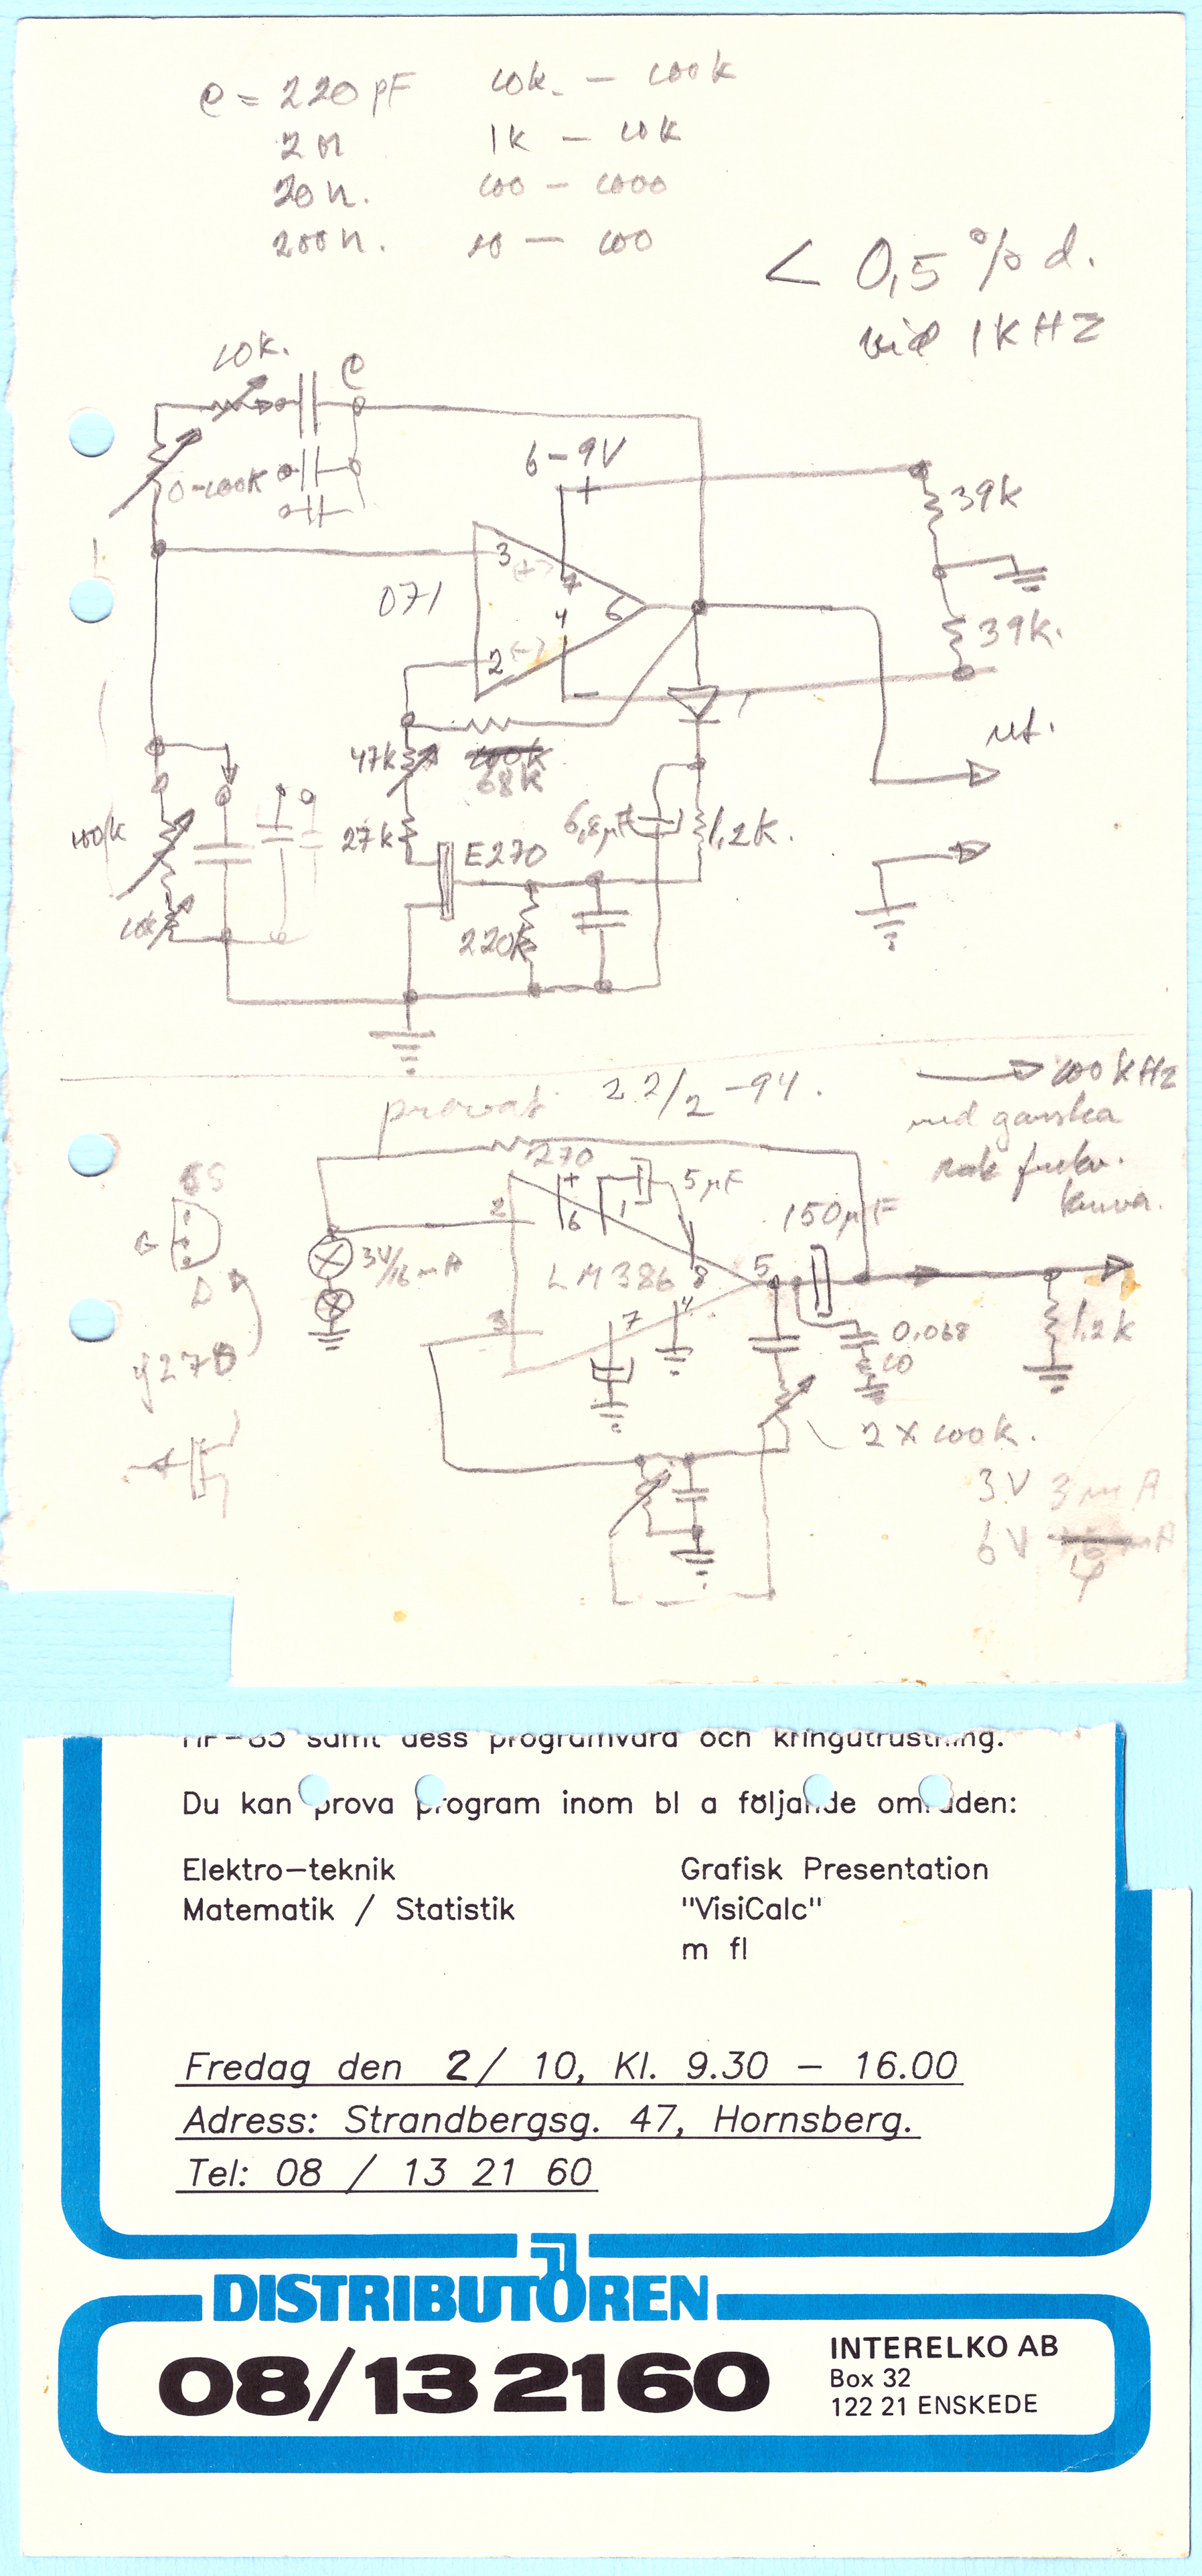 C = 220 pF 10k. – 100k
2n 1k – 10k
20n. 100 – 1000
200n. 10 – 100
< 0,5 % d.
vid 1 KHZ
10k.
C
0-100k
6-9V
+
39k
3
(+)
7
071
4
6
39k.
2
(-)
–
ut.
47k
100k
68k
100k
27k
E270
6,8µF
1,2k.
10k
220k
100 KHZ
provat 22/2 -94.
med ganska
rak frekv.
kurva.
270
+
5µF
S
2
6
1
150µF
G
3V/16mA
LM386
8
5
D
3
7
4
0,068
10
1,2k
J270
2 x 100k.
3V 3mA
6V 4
HF-85 samt dess programvara och kringutrustning.
Du kan prova program inom bl a följande områden:
Elektro-teknik Grafisk Presentation
Matematik / Statistik "VisiCalc"
m fl
Fredag den 2/ 10, Kl. 9.30 – 16.00
Adress: Strandbergsg. 47, Hornsberg.
Tel: 08 / 13 21 60
DISTRIBUTÖREN
08/13 21 60
INTERELKO AB
Box 32
122 21 ENSKEDE